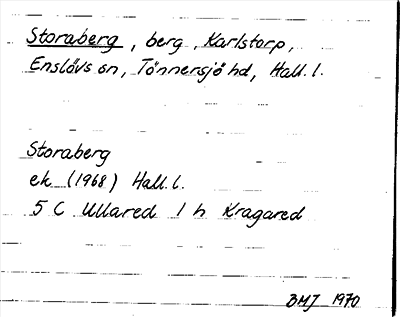 Storaberg, berg, Karlstorp,
Enslövs sn, Tönnersjö hd, Hall. l.
Storaberg
ek (1968) Hall. l.
5 C Ullared 1 h Kragared
BMJ 1970